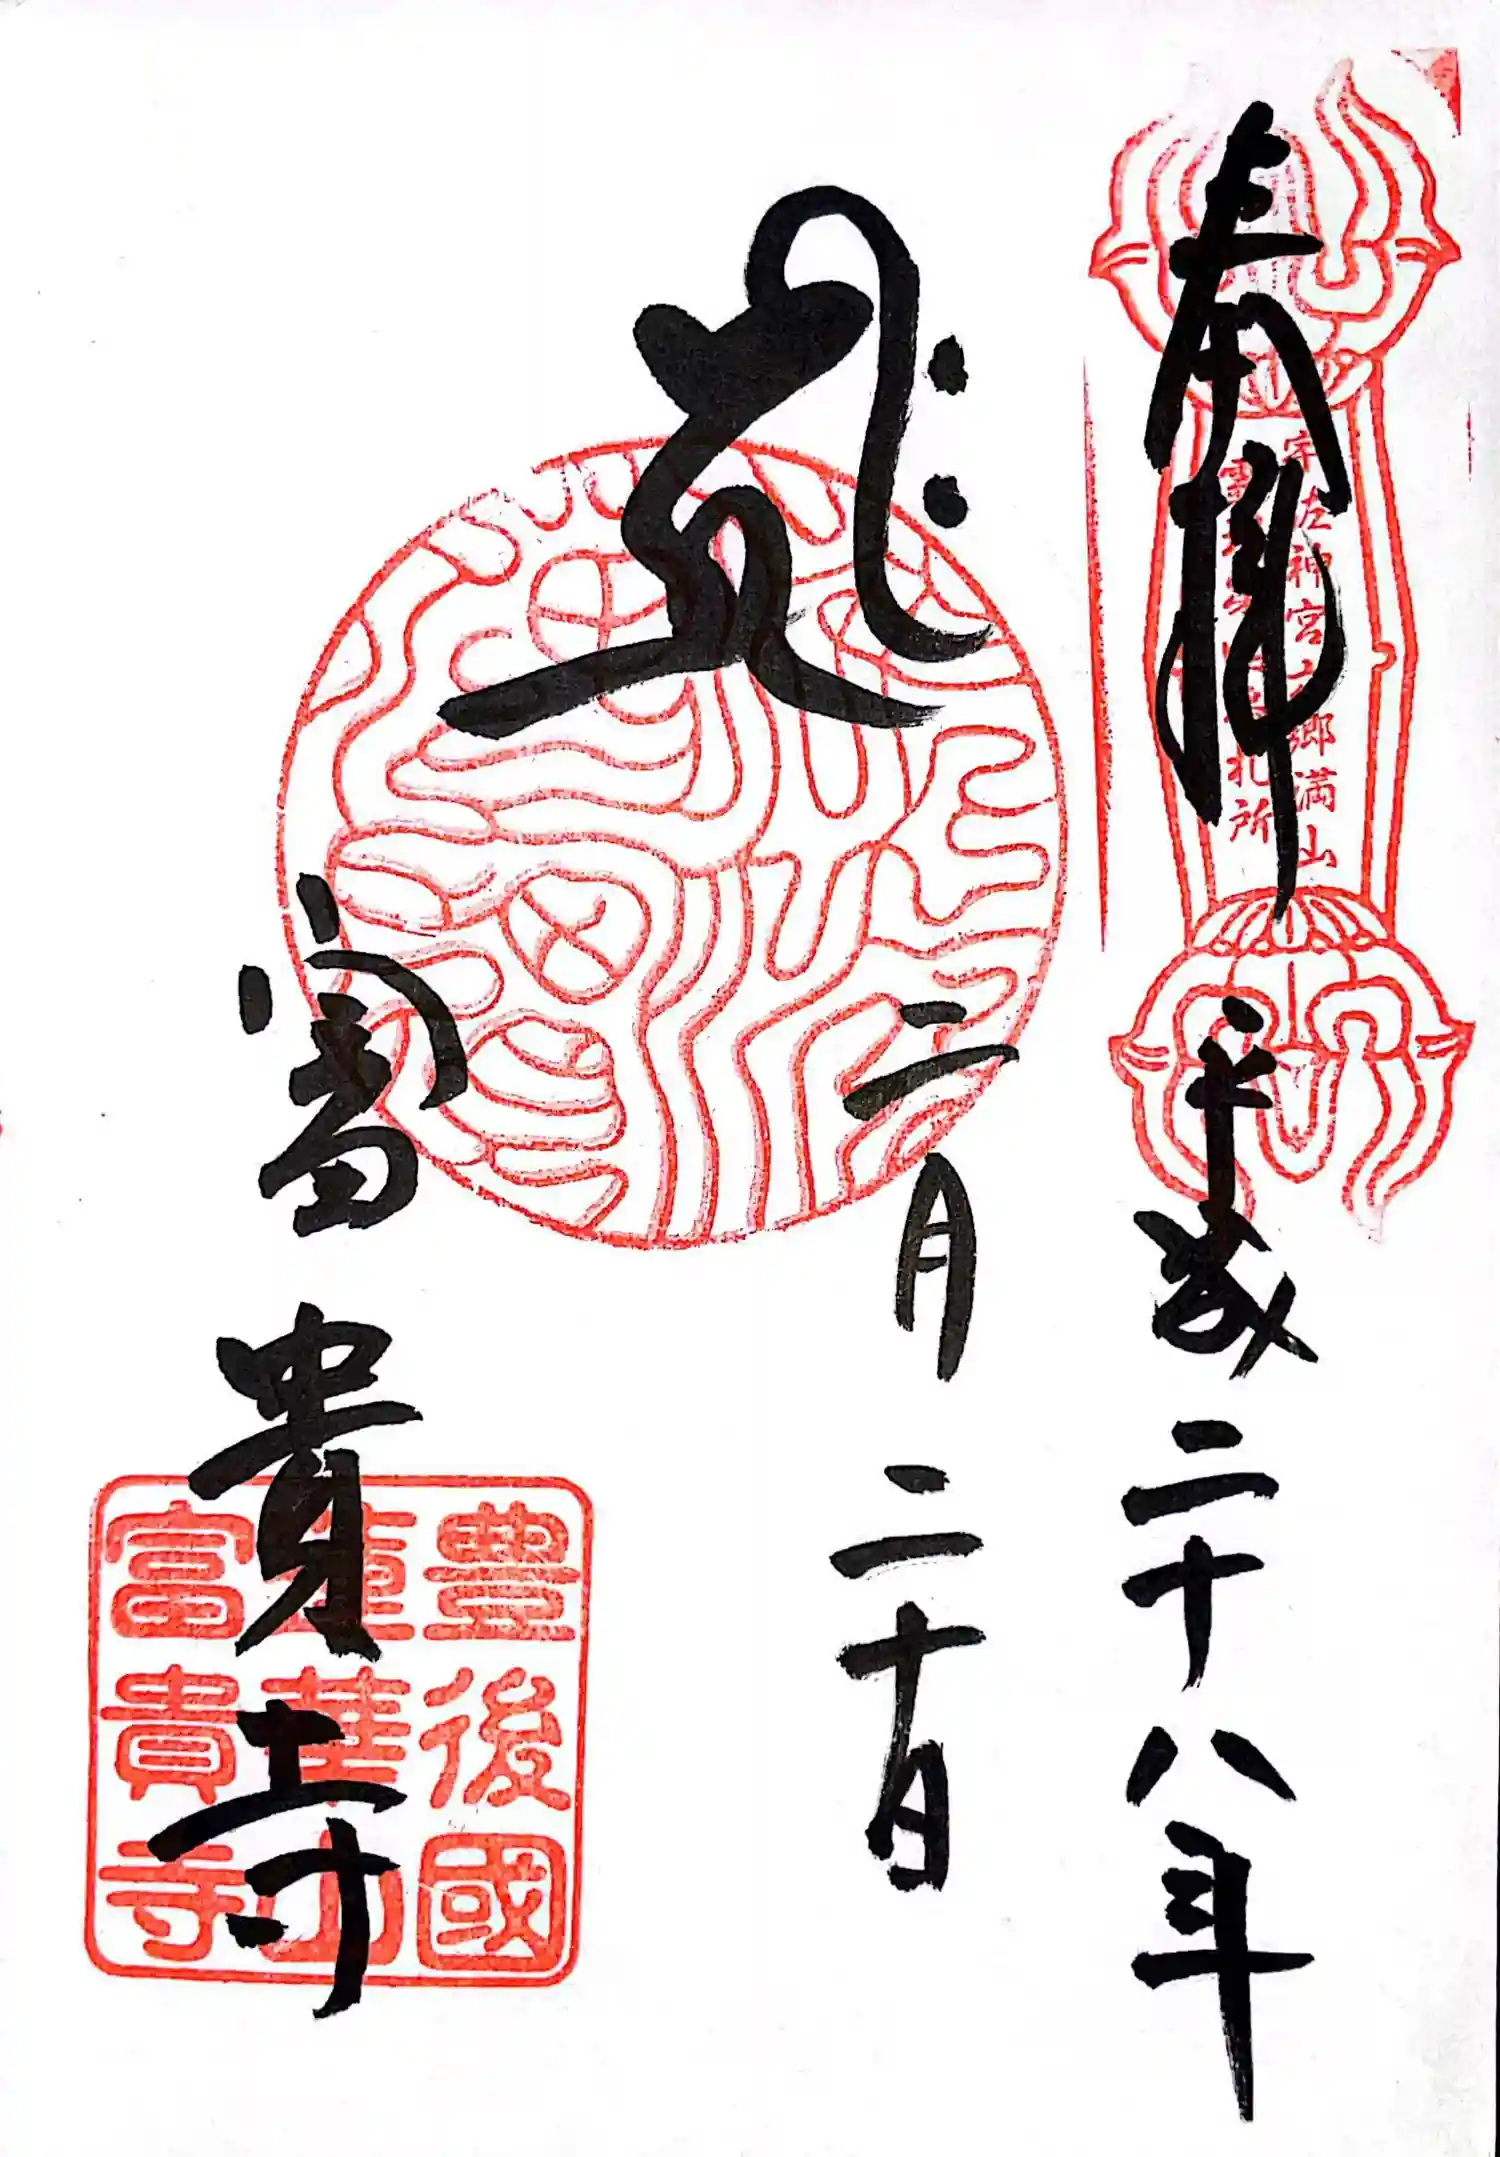 奉拝
宇佐神宮六郷満山
霊場 札所
平成二十八年
二月二十日
𑖮𑖿𑖨𑖱𑖾
富貴寺
豊後國
蓮華山
富貴寺